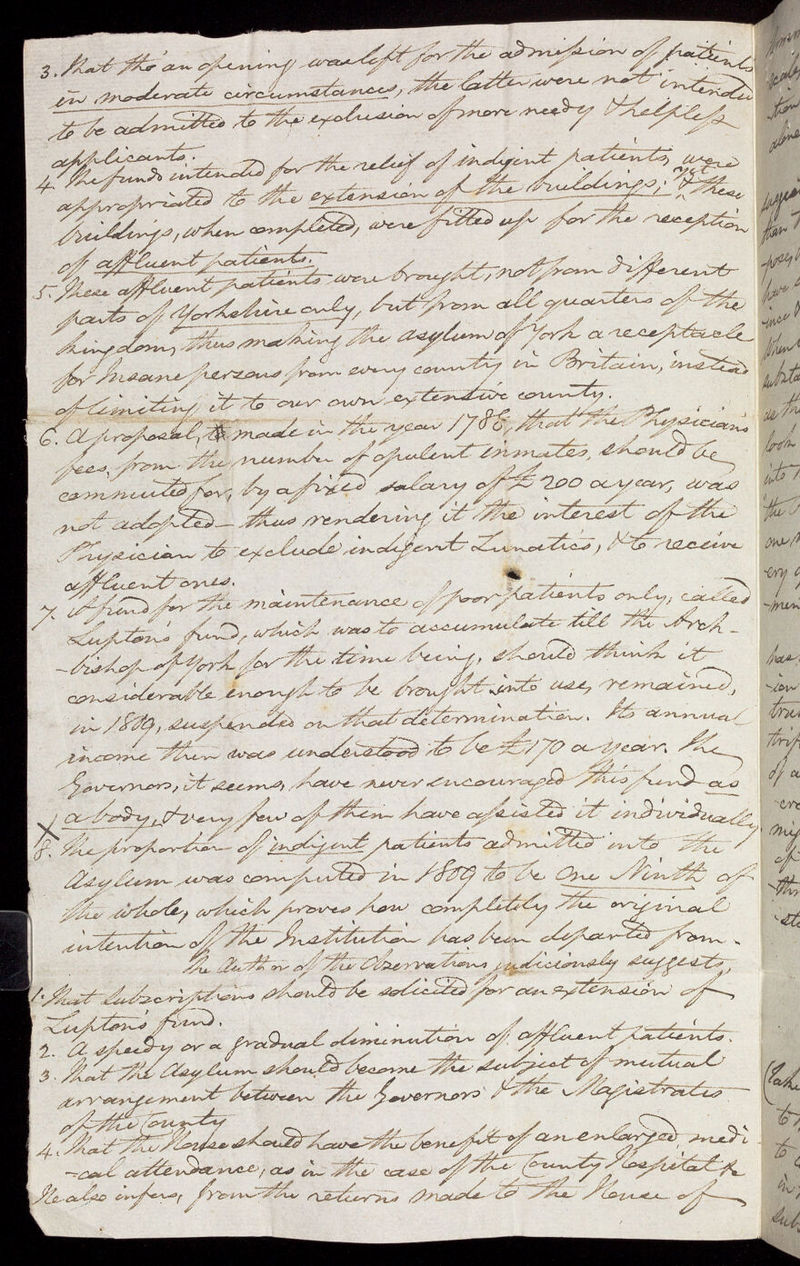 3. That tho' an opening was left for the admission of patients
in moderate circumstances, the latter were not intended
to be admitted to the exclusion of more needy & helpless
applicants.
4. The funds intended for the relief of indigent patients were
appropriated to the extension of the buildings; & yet these
buildings, when completed, were fitted up for the reception
of affluent patients.
5. These affluent patients were brought, not from different
parts of Yorkshire only, but from all quarters of the
kingdom, thus making the asylum of York a receptacle
for Insane persons from every county in Britain, instead
of limiting it to our own extensive county.
6. A proposal, made in the year 1786, that the Physician's
fees, from the number of opulent inmates, should be
commuted for, by a fixed salary of £200 a year, was
not adopted - thus rendering it the interest of the
Physician to exclude indigent Lunatics, & to receive
affluent ones.
7. A fund for the maintenance of poor patients only, called
Lupton's fund, which was to accumulate till the Arch-
-bishop of York for the time being, should think it
considerable enough to be brought into use, remained,
in 1809, suspended on that determination. Its annual
income then was understood to be £170 a year. The
Governors, it seems, have never encouraged this fund as
a body, & very few of them have assisted it individually.
8. The proportion of indigent patients admitted into the
Asylum was computed in 1809 to be One Ninth of
the whole, which proves how completely the original
intention of the Institution has been departed from.
The Author of the Observations judiciously suggests,
1. That Subscriptions should be solicited for an extension of
Lupton's fund.
2. A speedy or a gradual diminution of affluent patients.
3. That the Asylum should become the subject of mutual
arrangement between the Governors & the Magistrates
of the County
4. That the House should have the benefit of an enlarged medi
-cal attendance, as in the case of the County Hospital &c
He also infers, from the returns made to the House of